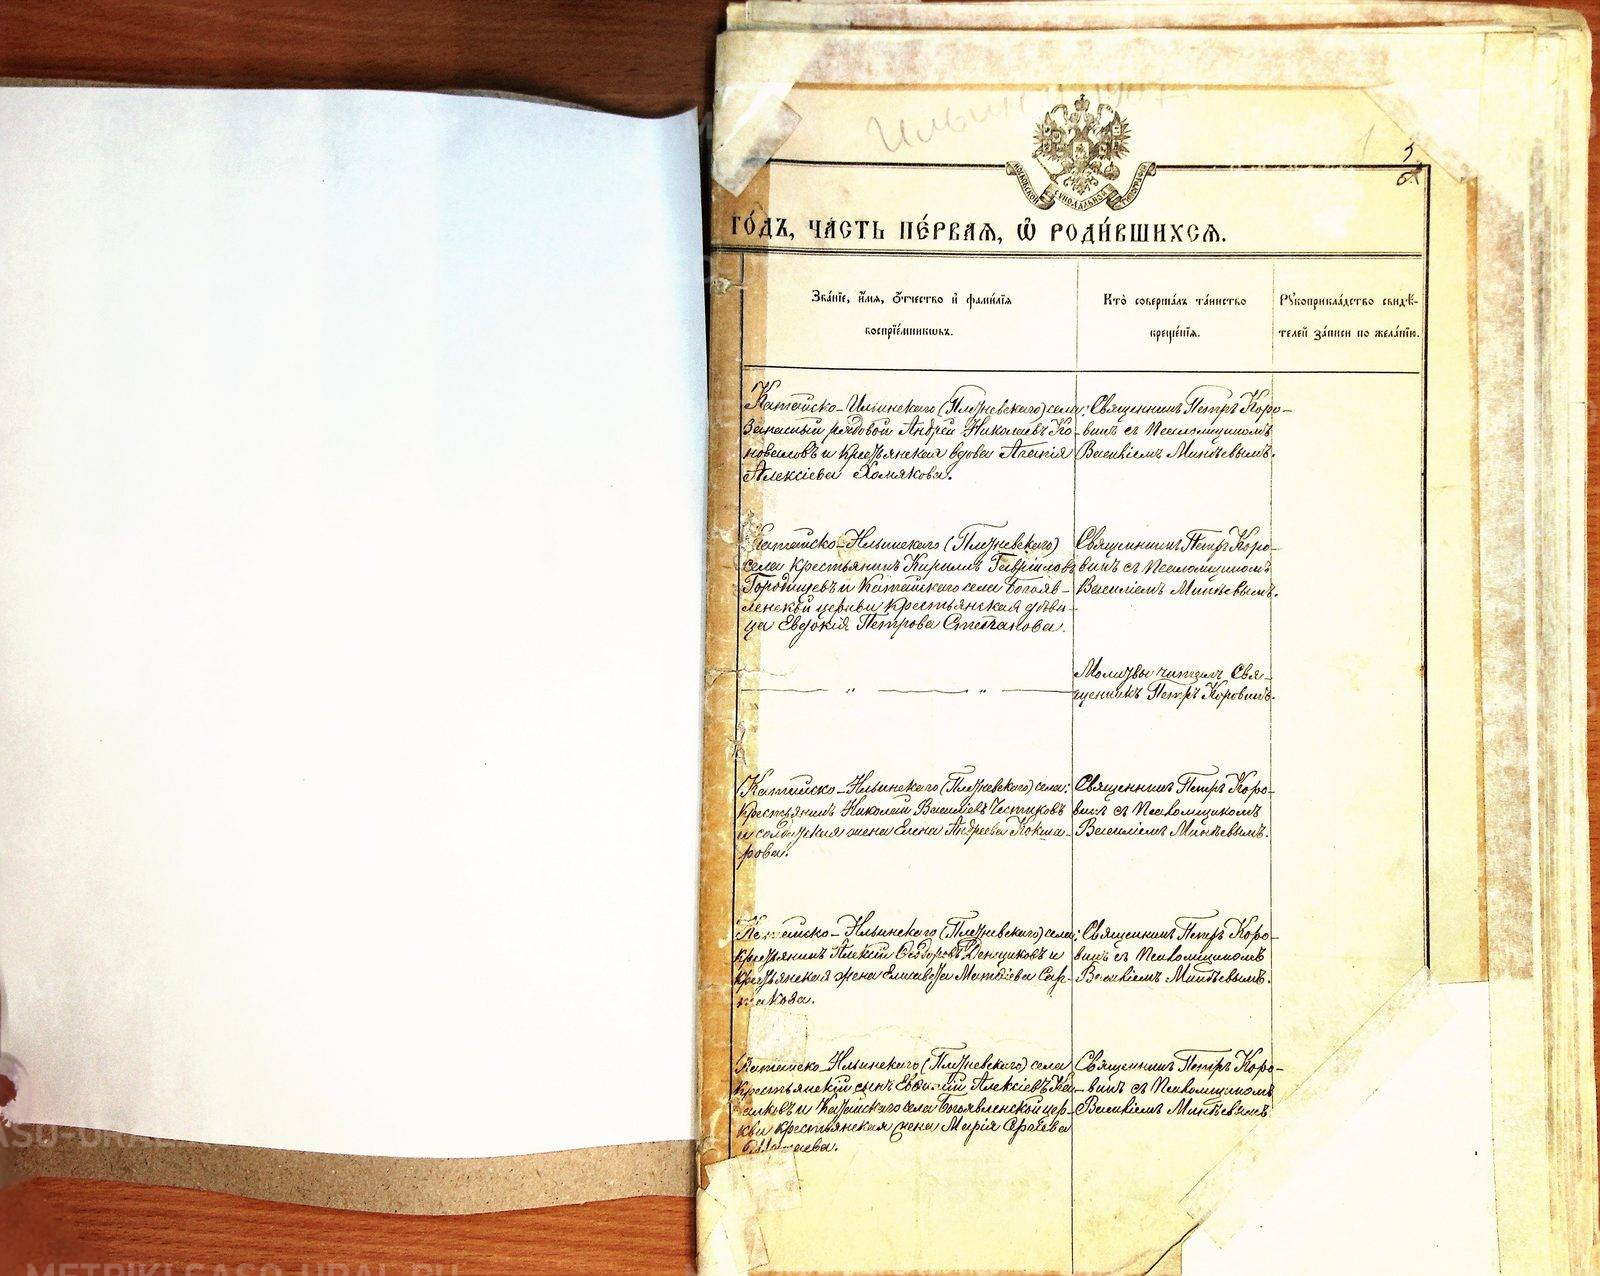 Ильин
МОСКОВСКОЙ СѴНОДАЛЬНОЙ ТИПОГРАФІИ
ГО́ДЪ, ЧА́СТЬ ПЕ́РВАѦ, Ѽ РОДИ́ВШИХСѦ.
Зва́нїе, и҆́мѧ, ѻ҆́тчество и҆ фами́лїѧ
воспрїе́мникѡвъ.
Кто̀ соверша́лъ та́инство
креще́нїѧ.
Рꙋкоприкла́дство свидѣ́-
телей за́писи по жела́нїю.
Катайско-Ильинскаго (Плотневскаго) села:
Запасный рядовой Андрей Николаевъ Ко-
новаловъ и крестьянская вдова Агапія
Алексіева Хомякова.
Священникъ Петръ Коро-
винъ съ Псаломщикомъ
Василіемъ Минѣевымъ.
Катайско-Ильинскаго (Плотневскаго)
села крестьянинъ Кириллъ Гавріиловъ
Городищевъ и Катайскаго села Богояв-
ленской церкви крестьянская дѣви-
ца Евдокія Петрова Степанова.
Священникъ Петръ Коро-
винъ съ Псаломщикомъ
Василіемъ Минѣевымъ.
— " — " —
Молитвы читалъ Свя-
щенникъ Петръ Коровинъ.
Катайско-Ильинскаго (Плотневскаго) села:
крестьянинъ Николай Василіевъ Чистяковъ
и солдатская жена Елена Андреева Кокша-
рова.
Священникъ Петръ Коро-
винъ съ Псаломщикомъ
Василіемъ Минѣевымъ.
Катайско-Ильинскаго (Плотневскаго) села:
крестьянинъ Алексій Ѳеодоровъ Денщиковъ и
крестьянская жена Елисавета Матѳіева Сар-
Священникъ Петръ Коро-
винъ съ Псаломщикомъ
Василіемъ Минѣевымъ.
Катайско-Ильинскаго (Плотневскаго) села
крестьянскій сынъ Алексіевъ
и Катайскаго села Богоявленской цер-
кви крестьянская жена Марія Сергіева
Священникъ Петръ Коро-
винъ съ Псаломщикомъ
Василіемъ Минѣевымъ.
METRIKI.GASO-URAL.RU